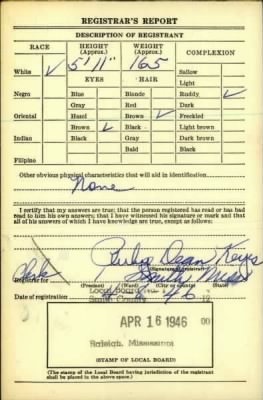 REGISTRAR'S REPORT
DESCRIPTION OF REGISTRANT
RACE HEIGHT (Approx.) WEIGHT (Approx.) COMPLEXION
5' 11" 165
White ✓ Sallow
EYES HAIR Light
Negro Blue Blonde Ruddy ✓
Gray Red Dark
Oriental Hazel Brown ✓ Freckled
Brown ✓ Black Light brown
Indian Black Gray Dark brown
Bald Black
Filipino
Other obvious physical characteristics that will aid in identification
None
I certify that my answers are true; that the person registered has read or has had
read to him his own answers; that I have witnessed his signature or mark and that
all of his answers of which I have knowledge are true, except as follows:
Dean Keys
(Signature of registrar)
Registrar for Clerk Smith Miss
(Precinct) (Ward) (City or county) (State)
Local Board
Date of registration
Smith County
APR 16 1946
Raleigh, Mississippi
(STAMP OF LOCAL BOARD)
(The stamp of the Local Board having jurisdiction of the registrant
shall be placed in the above space.)